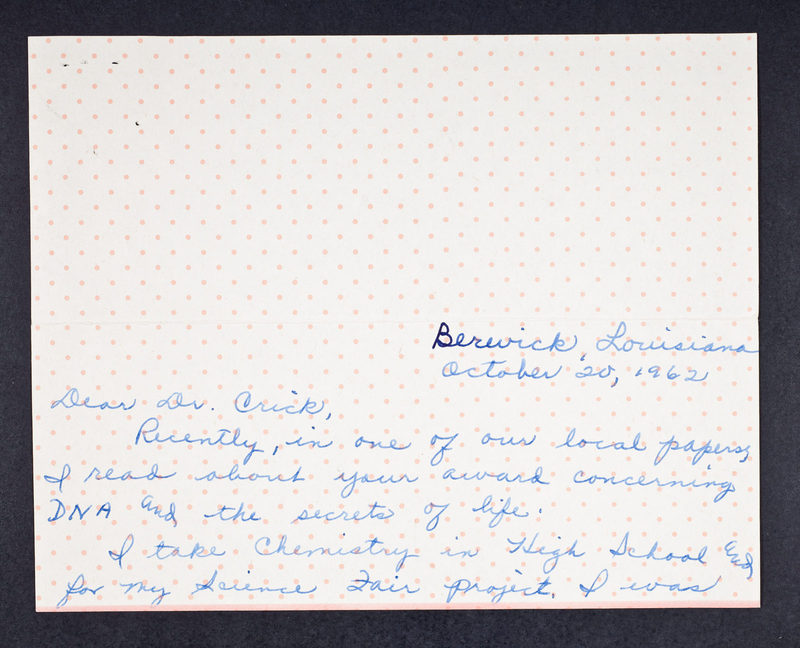 Berwick, Louisiana
October 20, 1962
Dear Dr. Crick,
Recently, in one of our local papers,
I read about your award concerning
DNA and the secrets of life.
I take Chemistry in High School and
for my Science Fair project, I was